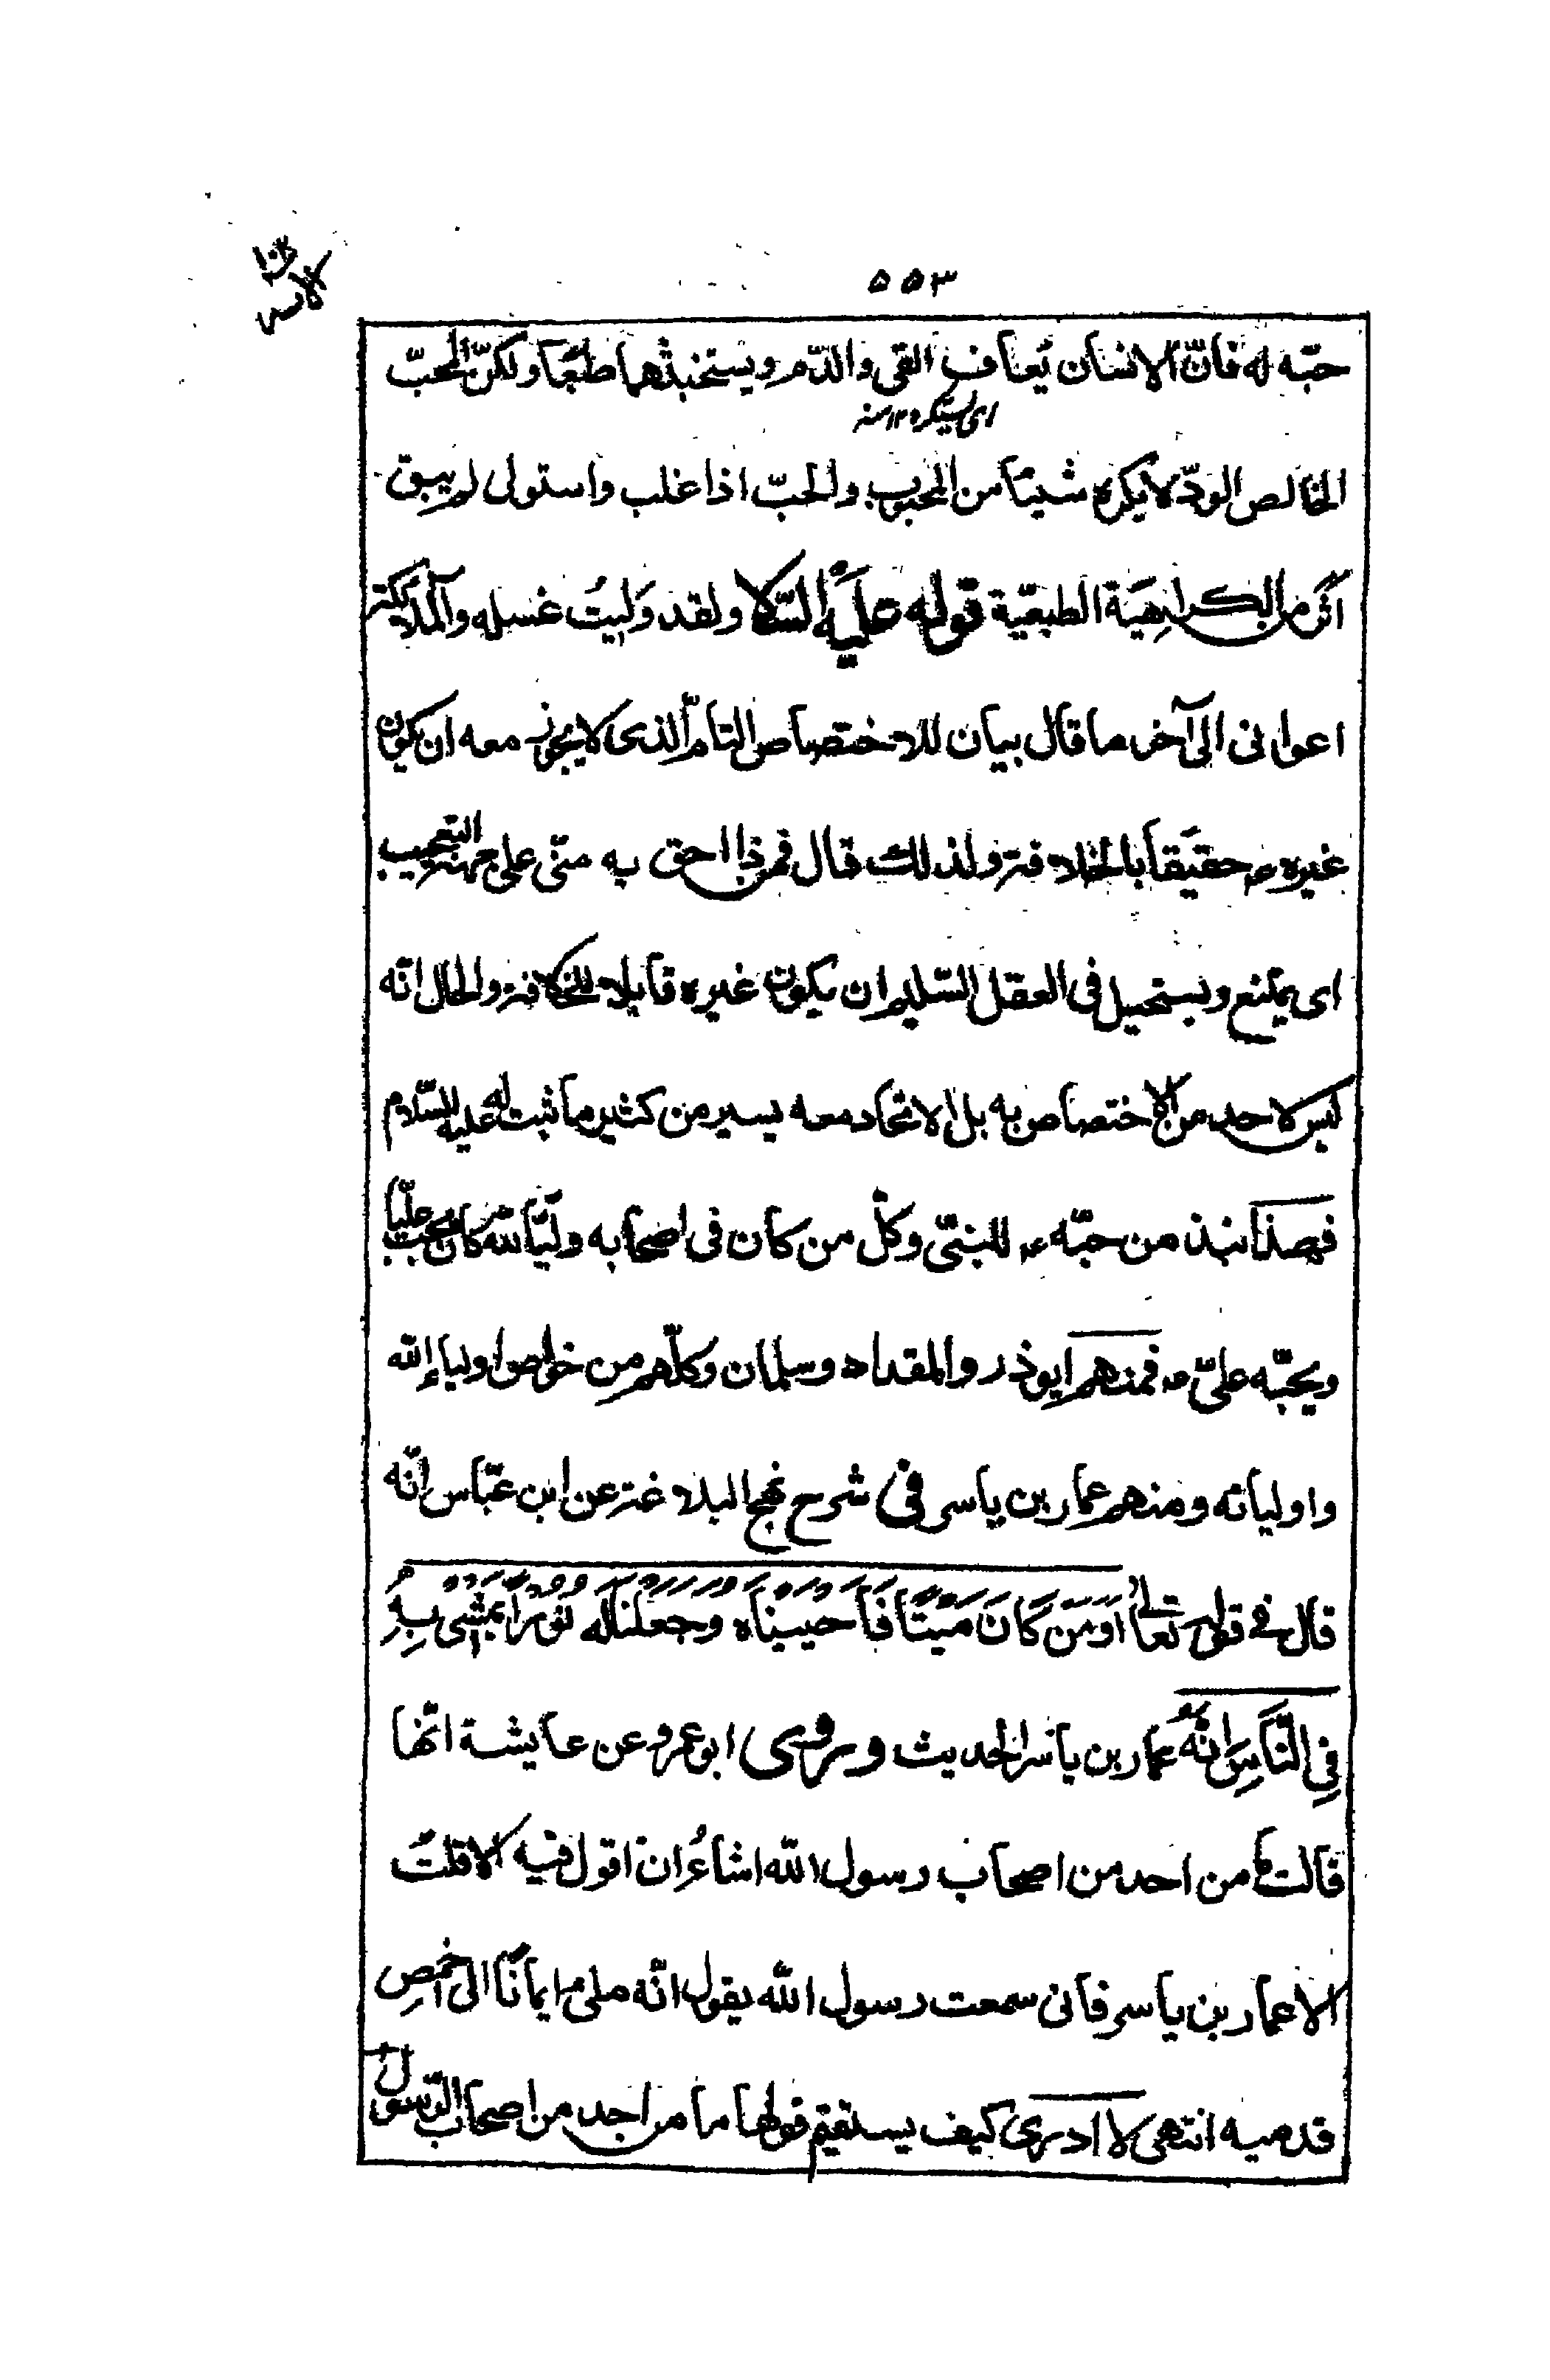 ٥٥٣
حبّه له فانّ الانسان يُعاف القى والدّم ويستخبثهما طبعًا ولكنّ المحبّ
اى يستكره ١٢ منه
الخالص الودّ لا يكره شيئًا من المحبوب والحبّ اذا غلب واستولى لم يبق
اثر من الكراهيَة الطبعيّة قوله عليه السّلا ولقد وَليتُ غسله والملائكة
اعوانى الى آخر ما قال بيان للاختصاص التامّ الذى لا يجوز معه ان يكون
غيره ع حقيقًا بالخلافة ولذلك قال فمن ذا احق به منّى على جهة التعجيب
اى يمتنع ويستحيل فى العقل السّليم ان يكون غيره قابلا للخلافة والحال انّه
ليس لاحد من الاختصاص به بل الاتحاد معه يسير من كثير ما ثبت له عليه السّلام
فهذا نبذ من حبّه ع للنبىّ وكلّ من كان فى اصحابه وليًّا لله كان يحبّ عليًّا
ويحبّه علىّ ع فمنهم ابوذر والمقداد وسلمان وكلّهم من خواصّ اولياء الله
واوليائه ومنهم عمار بن ياسر فى شرح نهج البلاغة عن ابن عبّاس انّه
قال فى قوله تعالى اَوَمَن كَانَ مَيتًا فَأَحيَينَاه وَجَعَلنَا لَه نُورًا يَمشِى بِهِ
فِى النَّاسِ انّه عمار بن ياسر الحديث وروى ابو عمرو عن عايشة انّها
قالت ما من احد من اصحاب رسول الله اشاءُ ان اقول فيه الا قلتُ
الا عمار بن ياسر فانى سمعت رسول الله يقول انّه ملئ ايمانًا الى اخمصِ
قدميه انتهى لا ادرى كيف يستقيم قولها ما من احد من اصحاب الرّسول